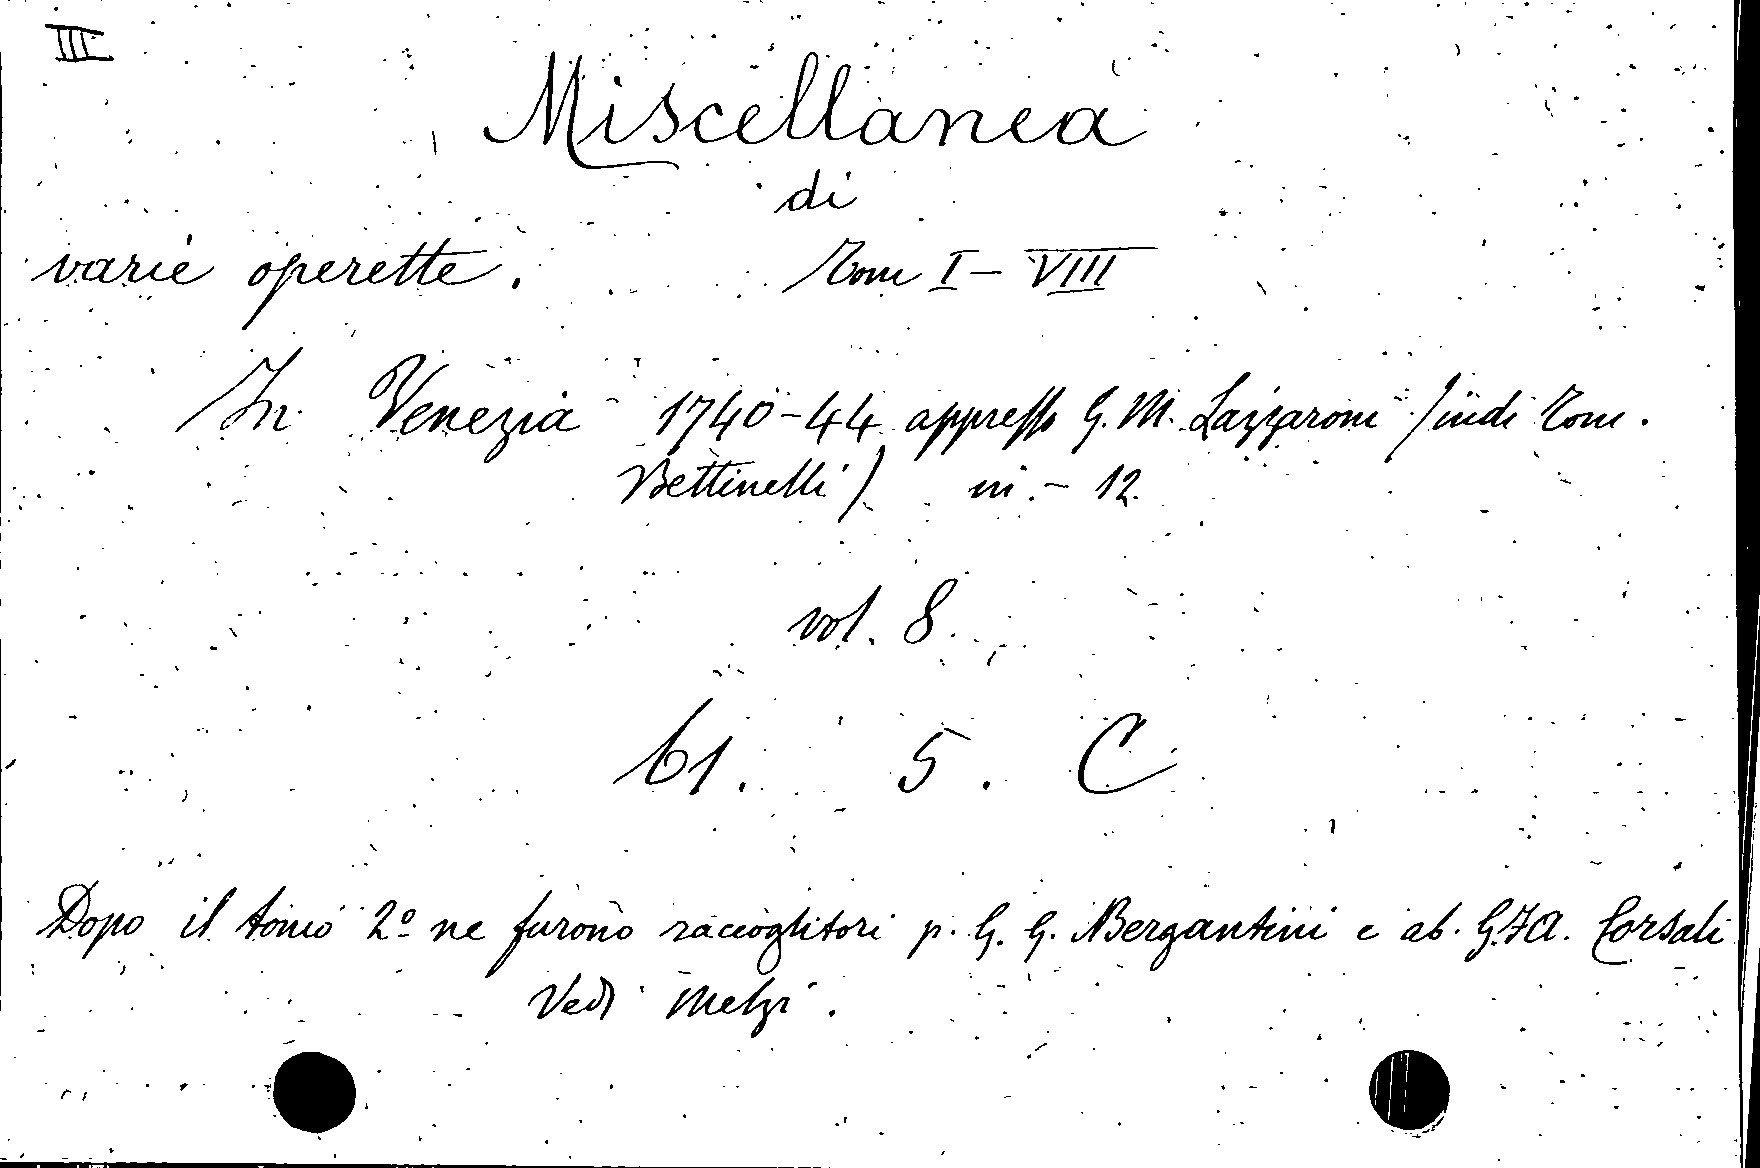 III
Miscellanea
di
varie operette. Tom I - VIII
In Venezia 1740-44 appresso G. M. Lazzaroni (indi Tom.
Bettinelli) in.- 12.
vol. 8.
61. 5. C
Dopo il tomo 2º ne furono raccoglitori p. G. G. Bergantini e ab. Corsali
Vedi Melzi.